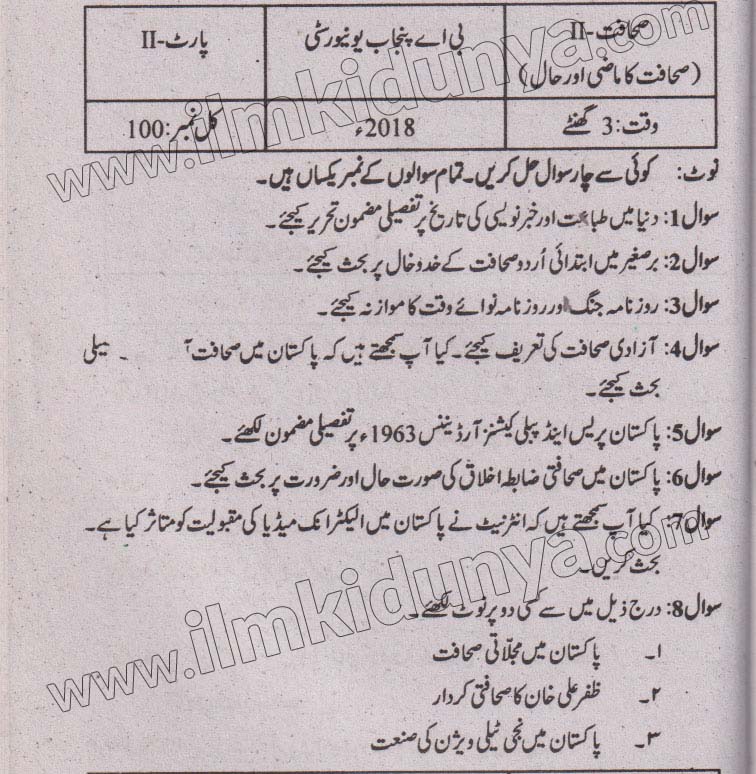 صحافت-II بی اے پنجاب یونیورسٹی پارٹ-II
(صحافت کا ماضی اور حال)
وقت: 3 گھنٹے 2018ء کل نمبر: 100
نوٹ: کوئی سے چار سوال حل کریں۔ تمام سوالوں کے نمبر یکساں ہیں۔
سوال 1: دنیا میں طباعت اور خبر نویسی کی تاریخ پر تفصیلی مضمون تحریر کیجئے۔
سوال 2: برصغیر میں ابتدائی اُردو صحافت کے خدوخال پر بحث کیجئے۔
سوال 3: روزنامہ جنگ اور روزنامہ نوائے وقت کا موازنہ کیجئے۔
سوال 4: آزادی صحافت کی تعریف کیجئے۔ کیا آپ سمجھتے ہیں کہ پاکستان میں صحافت
بحث کیجئے۔
سوال 5: پاکستان پریس اینڈ پبلی کیشنز آرڈیننس 1963ء پر تفصیلی مضمون لکھئے۔
سوال 6: پاکستان میں صحافتی ضابطہ اخلاق کی صورت حال اور ضرورت پر بحث کیجئے۔
سوال 7: کیا آپ سمجھتے ہیں کہ انٹرنیٹ نے پاکستان میں الیکٹرانک میڈیا کی مقبولیت کو متاثر کیا ہے۔
بحث کریں۔
سوال 8: درج ذیل میں سے کسی دو پر نوٹ لکھئے۔
۱۔ پاکستان میں مجلّاتی صحافت
۲۔ ظفر علی خان کا صحافتی کردار
۳۔ پاکستان میں نجی ٹیلی ویژن کی صنعت
www.ilmkidunya.com
www.ilmkidunya.com